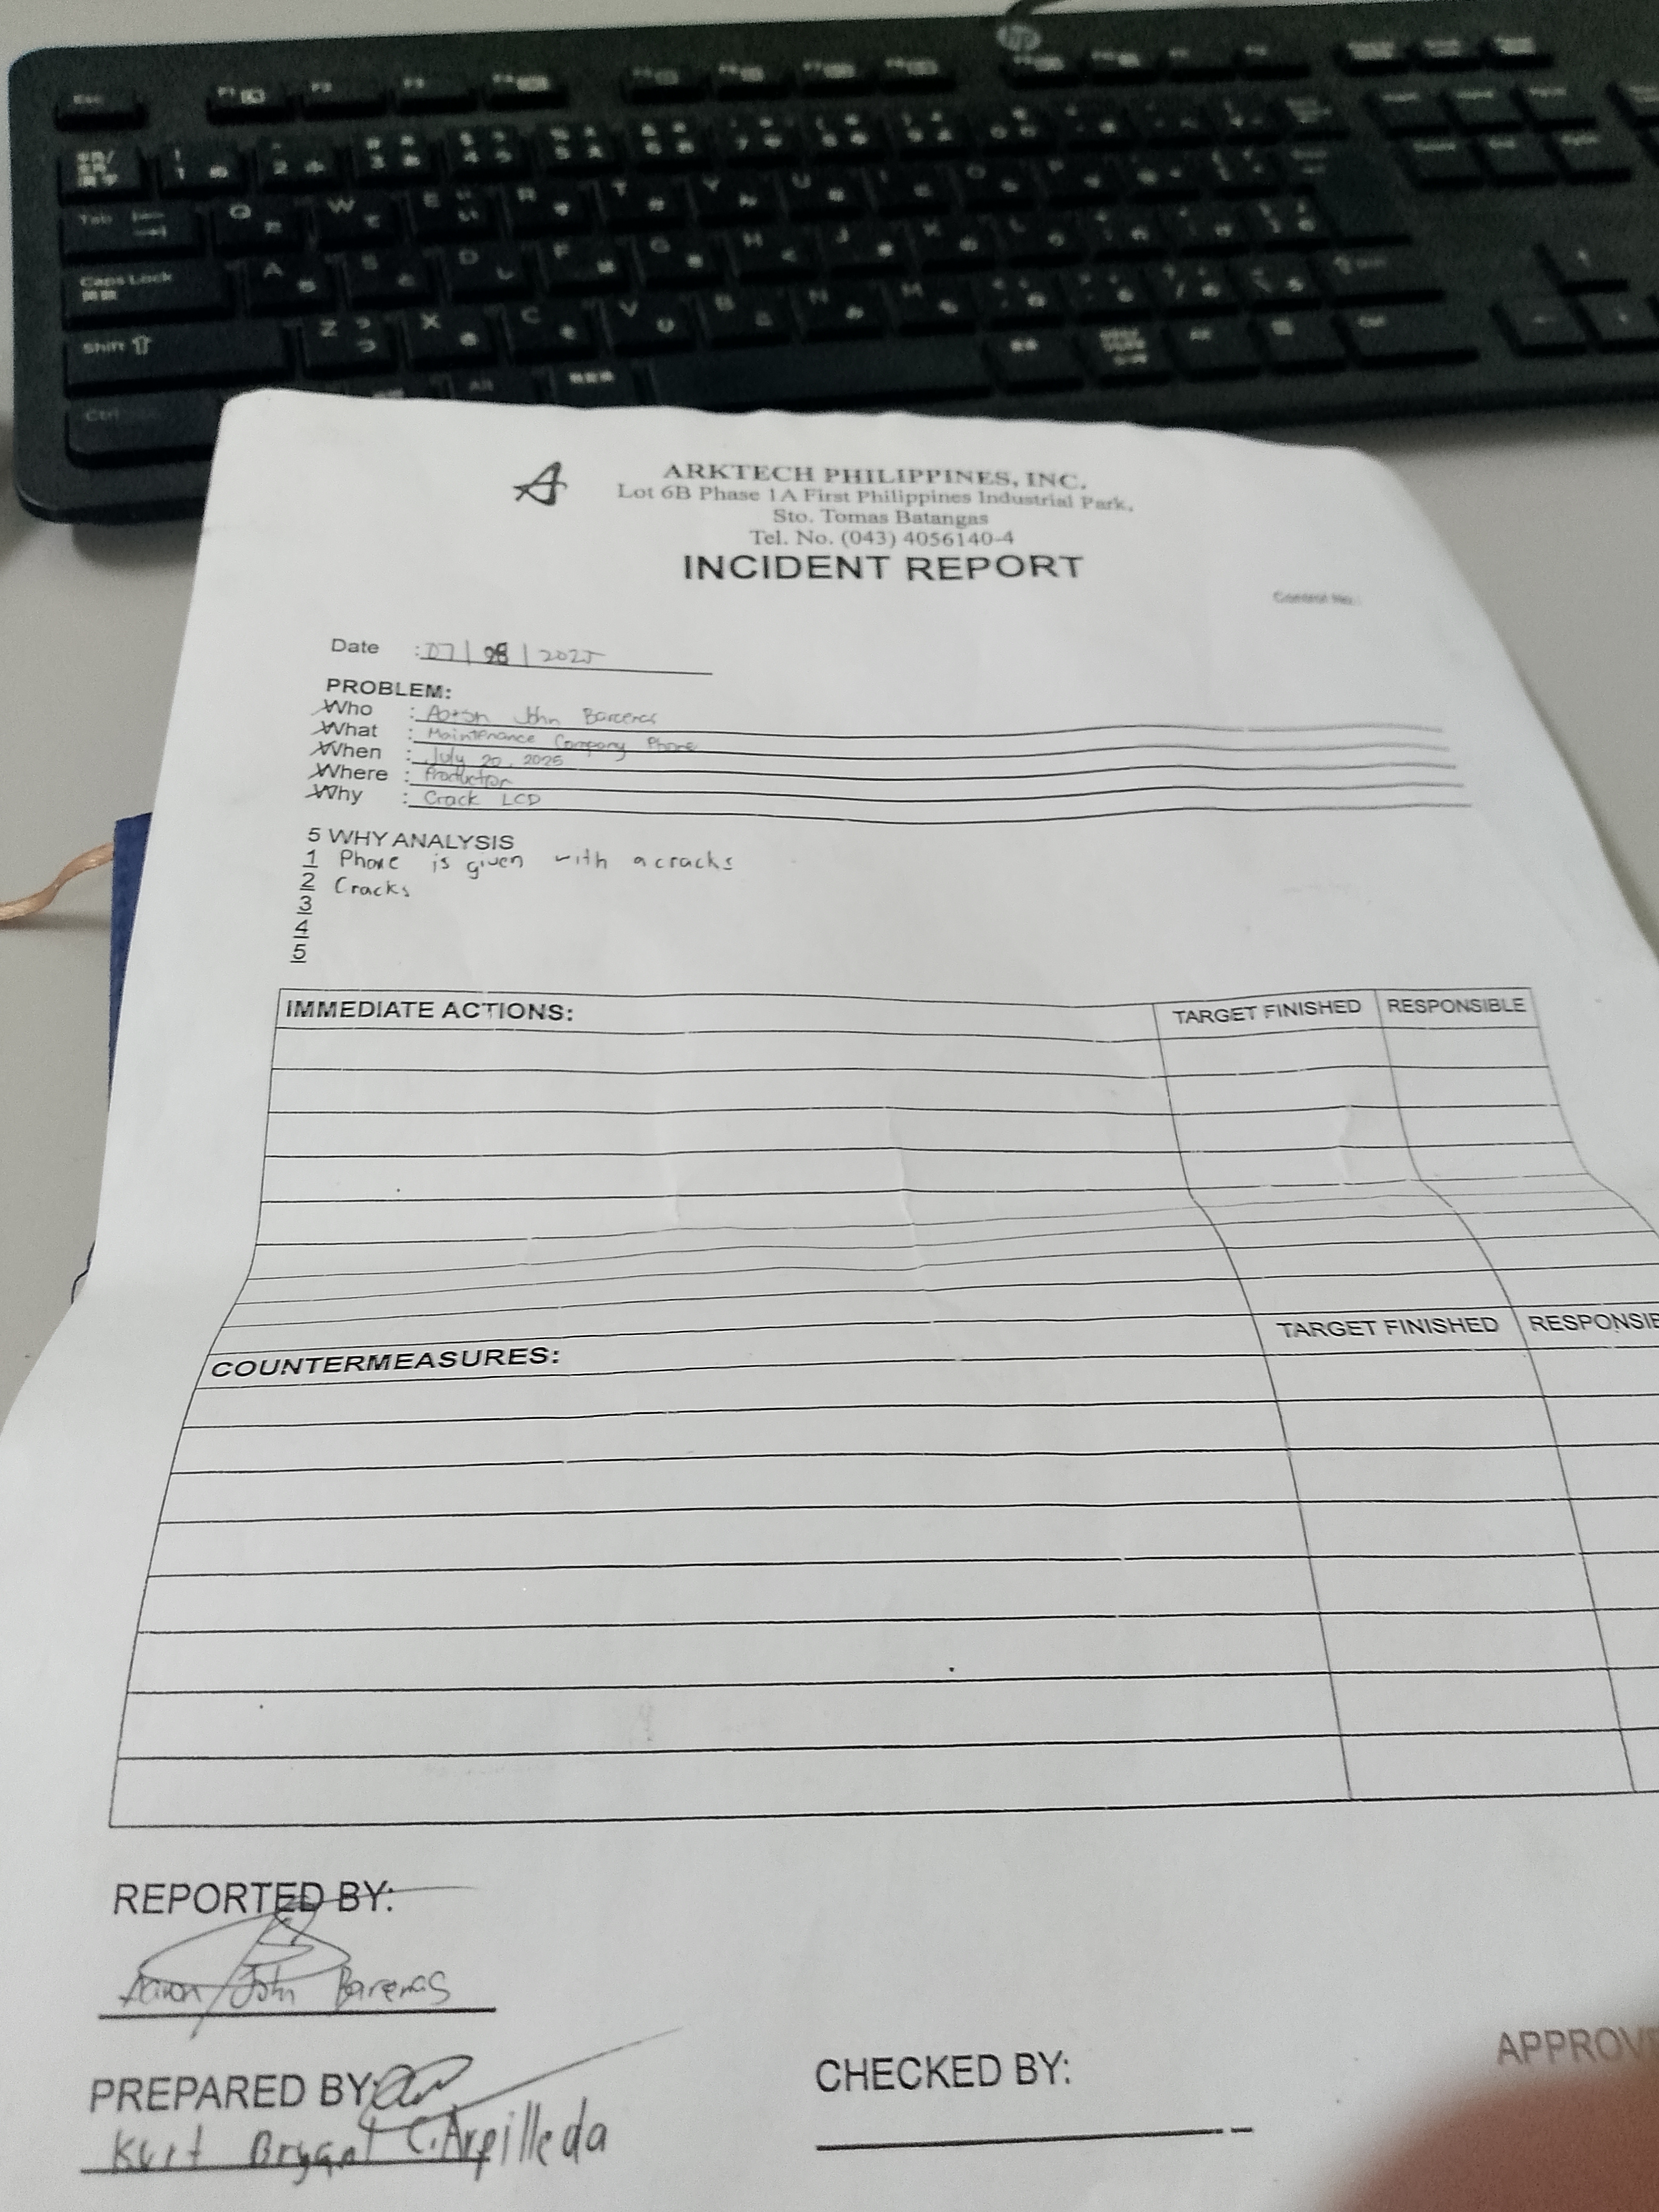 ARKTECH PHILIPPINES, INC.
Lot 6B Phase 1A First Philippines Industrial Park,
Sto. Tomas Batangas
Tel. No. (043) 4056140-4
INCIDENT REPORT
Control No.:
Date : 07 | 28 | 2025
PROBLEM:
Who : John
What : Maintenance Company Phone
When : July 20, 2025
Where : Production
Why : Crack LCD
5 WHY ANALYSIS
1 Phone is given with a cracks
2 Cracks
3
4
5
IMMEDIATE ACTIONS: TARGET FINISHED RESPONSIBLE
COUNTERMEASURES: TARGET FINISHED RESPONSIB
REPORTED BY:
Aaron John
PREPARED BY:
Kurt Bryant C. Arpilleda
CHECKED BY:
APPROV
Esc
Tab
Q W E R T Y U I O P
Caps Lock
A S D F G H J K L
Shift
Z X C V B N M
Ctrl
hp